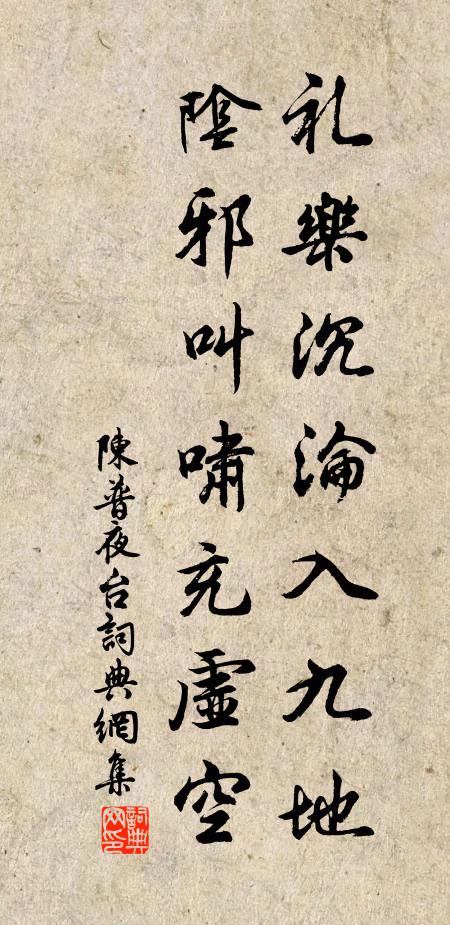 礼樂沉淪入九地
陰邪叫嘯充虛空
陳普夜台詞典網集
詞典网印